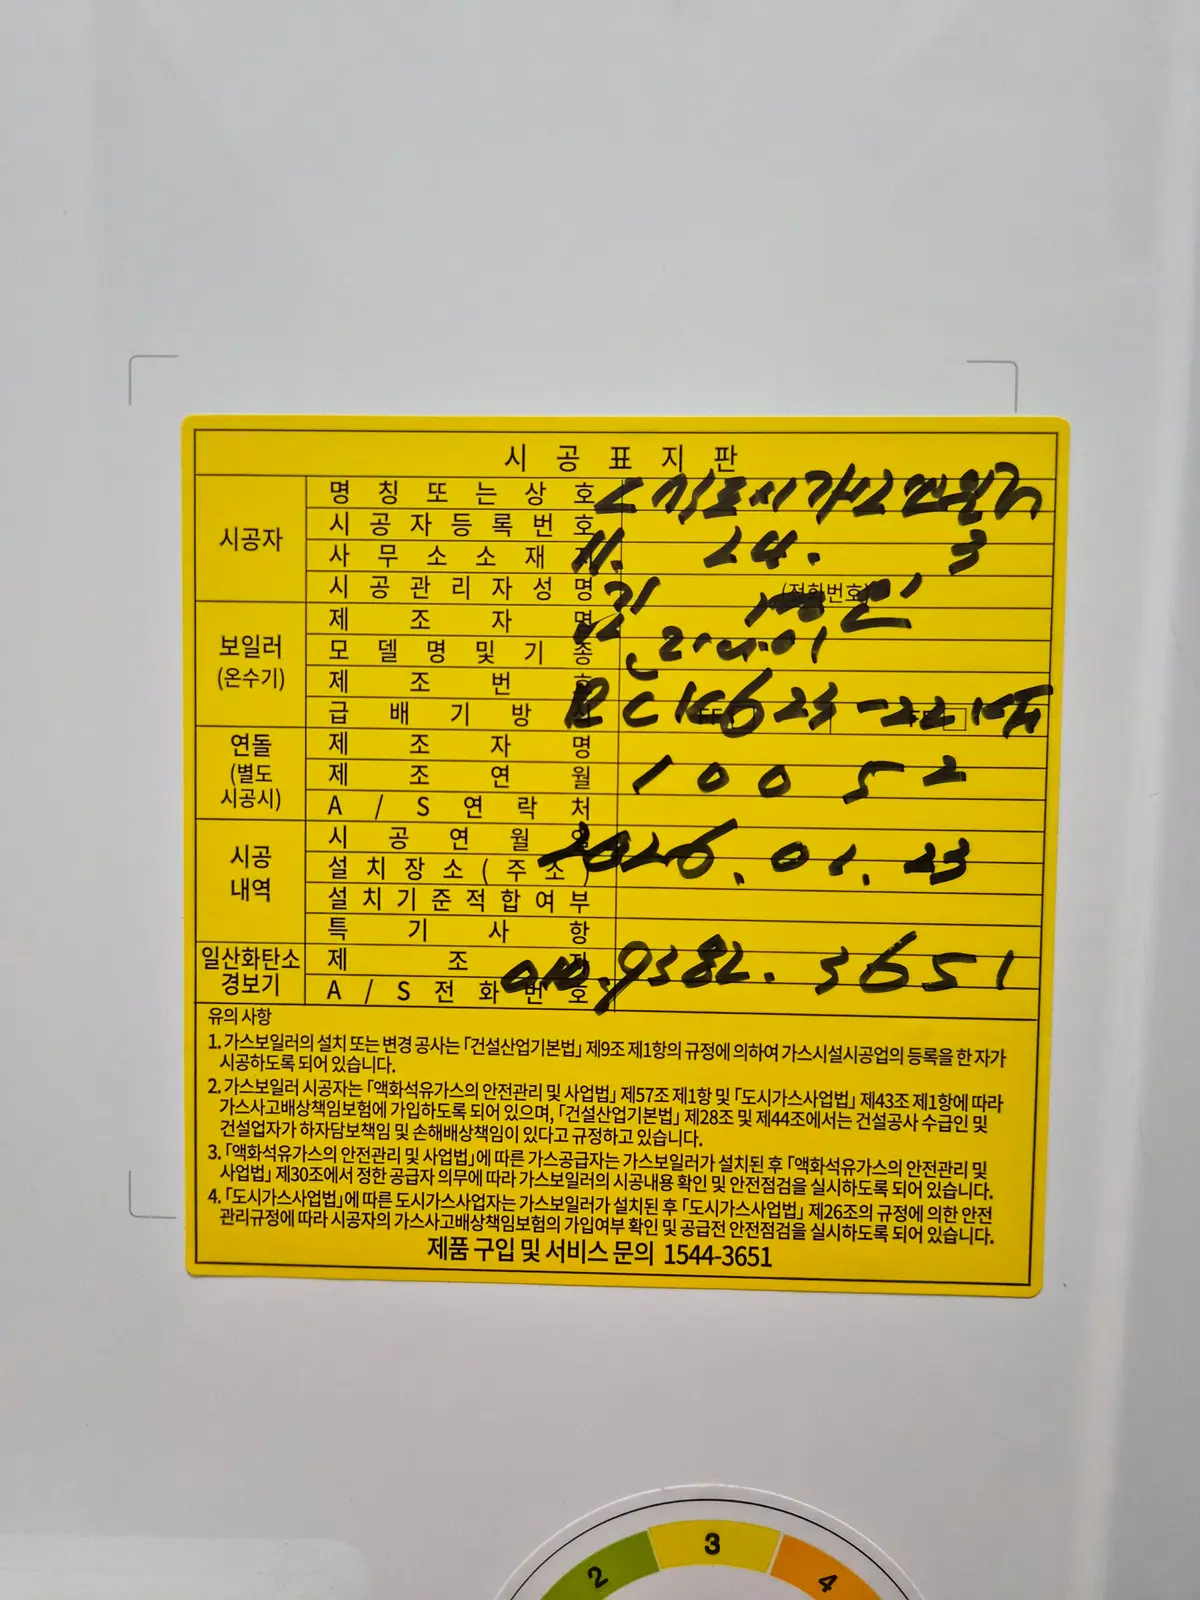 시 공 표 지 판
시공자
명 칭 또 는 상 호
시 공 자 등 록 번 호
사 무 소 소 재 지
11. 24. 3
시 공 관 리 자 성 명
(전화번호)
보일러
(온수기)
제 조 자 명
모 델 명 및 기 종
제 조 번 호
급 배 기 방 식
연돌
(별도
시공시)
제 조 자 명
제 조 연 월
10052
A / S 연 락 처
시공
내역
시 공 연 월 일
2026. 01. 23
설 치 장 소 ( 주 소 )
설 치 기 준 적 합 여 부
특 기 사 항
일산화탄소
경보기
제 조 자
010. 9382. 3651
A / S 전 화 번 호
유의 사항
1. 가스보일러의 설치 또는 변경 공사는 「건설산업기본법」 제9조 제1항의 규정에 의하여 가스시설시공업의 등록을 한 자가
시공하도록 되어 있습니다.
2. 가스보일러 시공자는 「액화석유가스의 안전관리 및 사업법」 제57조 제1항 및 「도시가스사업법」 제43조 제1항에 따라
가스사고배상책임보험에 가입하도록 되어 있으며, 「건설산업기본법」 제28조 및 제44조에서는 건설공사 수급인 및
건설업자가 하자담보책임 및 손해배상책임이 있다고 규정하고 있습니다.
3. 「액화석유가스의 안전관리 및 사업법」에 따른 가스공급자는 가스보일러가 설치된 후 「액화석유가스의 안전관리 및
사업법」 제30조에서 정한 공급자 의무에 따라 가스보일러의 시공내용 확인 및 안전점검을 실시하도록 되어 있습니다.
4. 「도시가스사업법」에 따른 도시가스사업자는 가스보일러가 설치된 후 「도시가스사업법」 제26조의 규정에 의한 안전
관리규정에 따라 시공자의 가스사고배상책임보험의 가입여부 확인 및 공급전 안전점검을 실시하도록 되어 있습니다.
제품 구입 및 서비스 문의 1544-3651
2 3 4